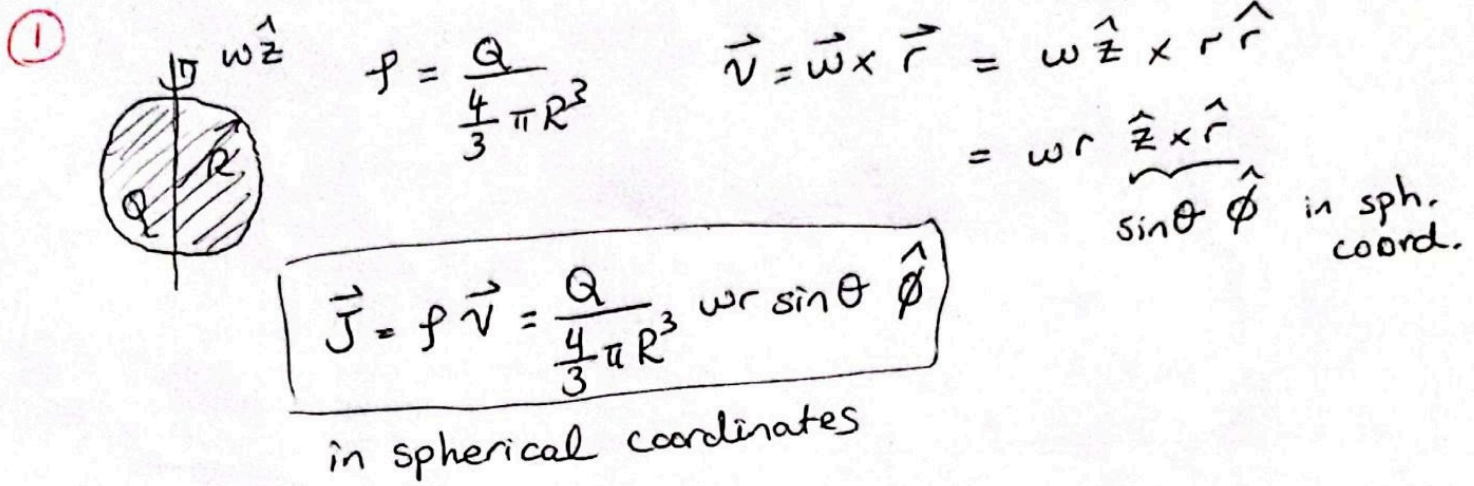 ①
ωẑ
R
Q
ρ = Q / (4/3 πR³)
v⃗ = ω⃗ × r⃗ = ω ẑ × r r̂
= ωr ẑ × r̂
sinθ φ̂ in sph. coord.
J⃗ = ρ v⃗ = Q / (4/3 πR³) ωr sinθ φ̂
in spherical coordinates